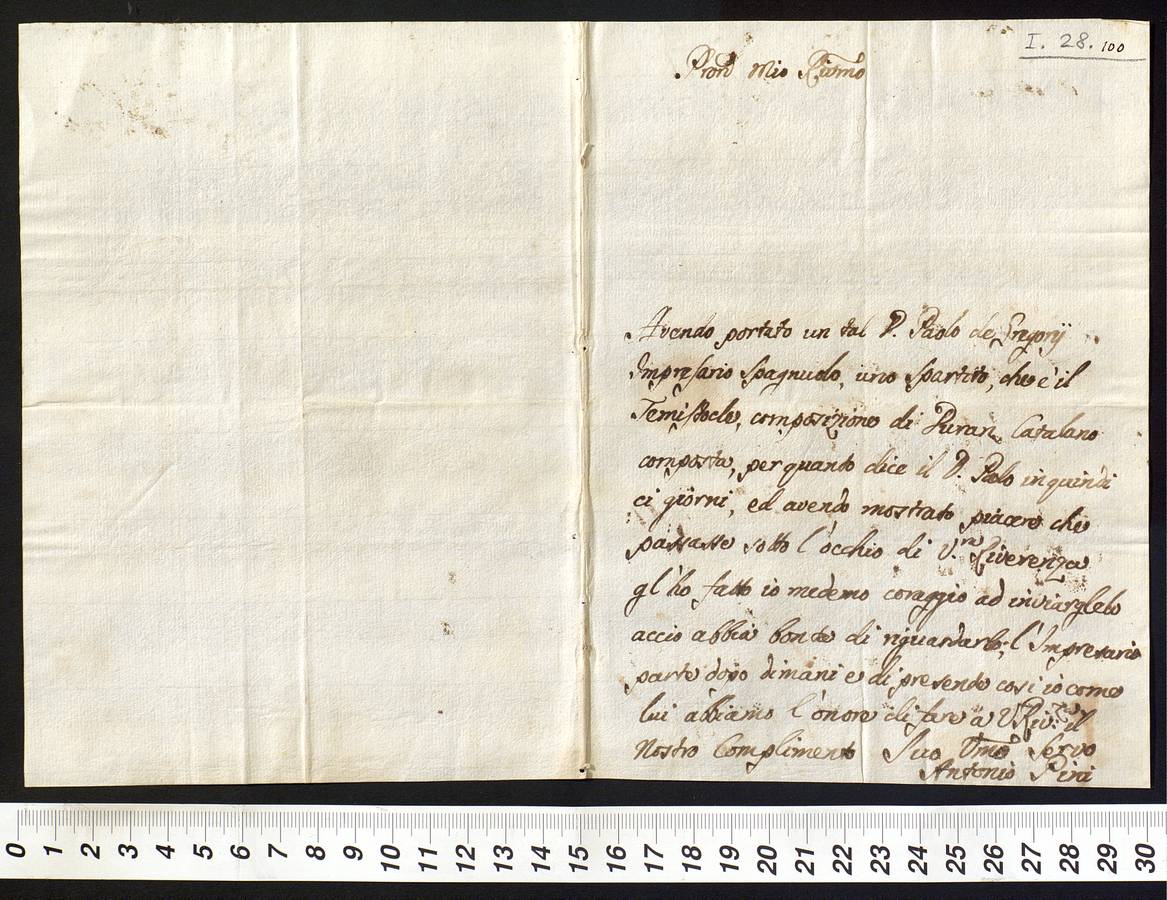 I. 28. 100
Pron̄ Mio Riv̄mo
Avendo portato un tal D. Paolo de Gregorij
Impresario Spagnuolo, uno Spartito, che è il
Temistocle, composizione di Duran Catalano
composta, per quanto dice il D. Paolo in quindi
ci giorni, ed avendo mostrato piacere che
passasse sotto l'occhio di V.ra Riverenza
gl'ho fatto io medemo coraggio ad inviarglelo
accio abbia bontà di riguardarlo; l'Impresario
parte dopo dimani e di presende così io come
lui abbiamo l'onore di fare a V. Riv.za il
Nostro Complimento Suo Umo Servo
Antonio Pini
0 1 2 3 4 5 6 7 8 9 10 11 12 13 14 15 16 17 18 19 20 21 22 23 24 25 26 27 28 29 30